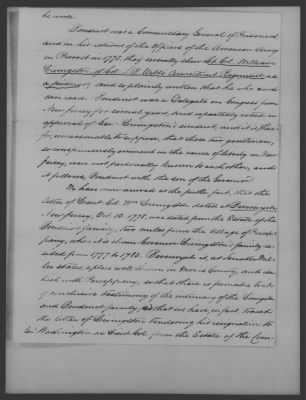 he wrote.
Boudinot was a Commissary General of Prisoners
and in his returns of the Officers of the American Army
in Provost in 1778, they certainly show Lt. Col. William
Livingston of Col. S. B. Webbs Connecticut Regiment, as
a prisoner, and so plainly written that he who runs
can read. Boudinot was a Delegate in Congress from
New Jersey for several years, and repeatedly voted in
approval of Gov. Livingston's conduct, and it is there-
fore unreasonable to suppose, that these two gentlemen,
so conspicuously eminent in the cause of liberty in New
Jersey, were not personally known to each other, and
it follows Boudinot with the son of the Governor.
We have now arrived at the further fact, that the
letter of Lieut. Col. Wm. Livingston, dated at
New Jersey, Oct. 10. 1778, was dated from the Estate of the
Boudinot family, two miles from the Village of Parsip-
pany, where it is shown Governor Livingston's family re-
sided from 1777 to 1780. is, as Senator
states, a place well known in Morris County, and
with Parsippany, so that there is formed a link
of conclusive testimony of the intimacy of the Livingston
and Boudinot family, so that we have, in fact, traced
the letter of Livingston tendering his resignation to
Gen. Washington as Lieut. Col. from the Estate of the Com-